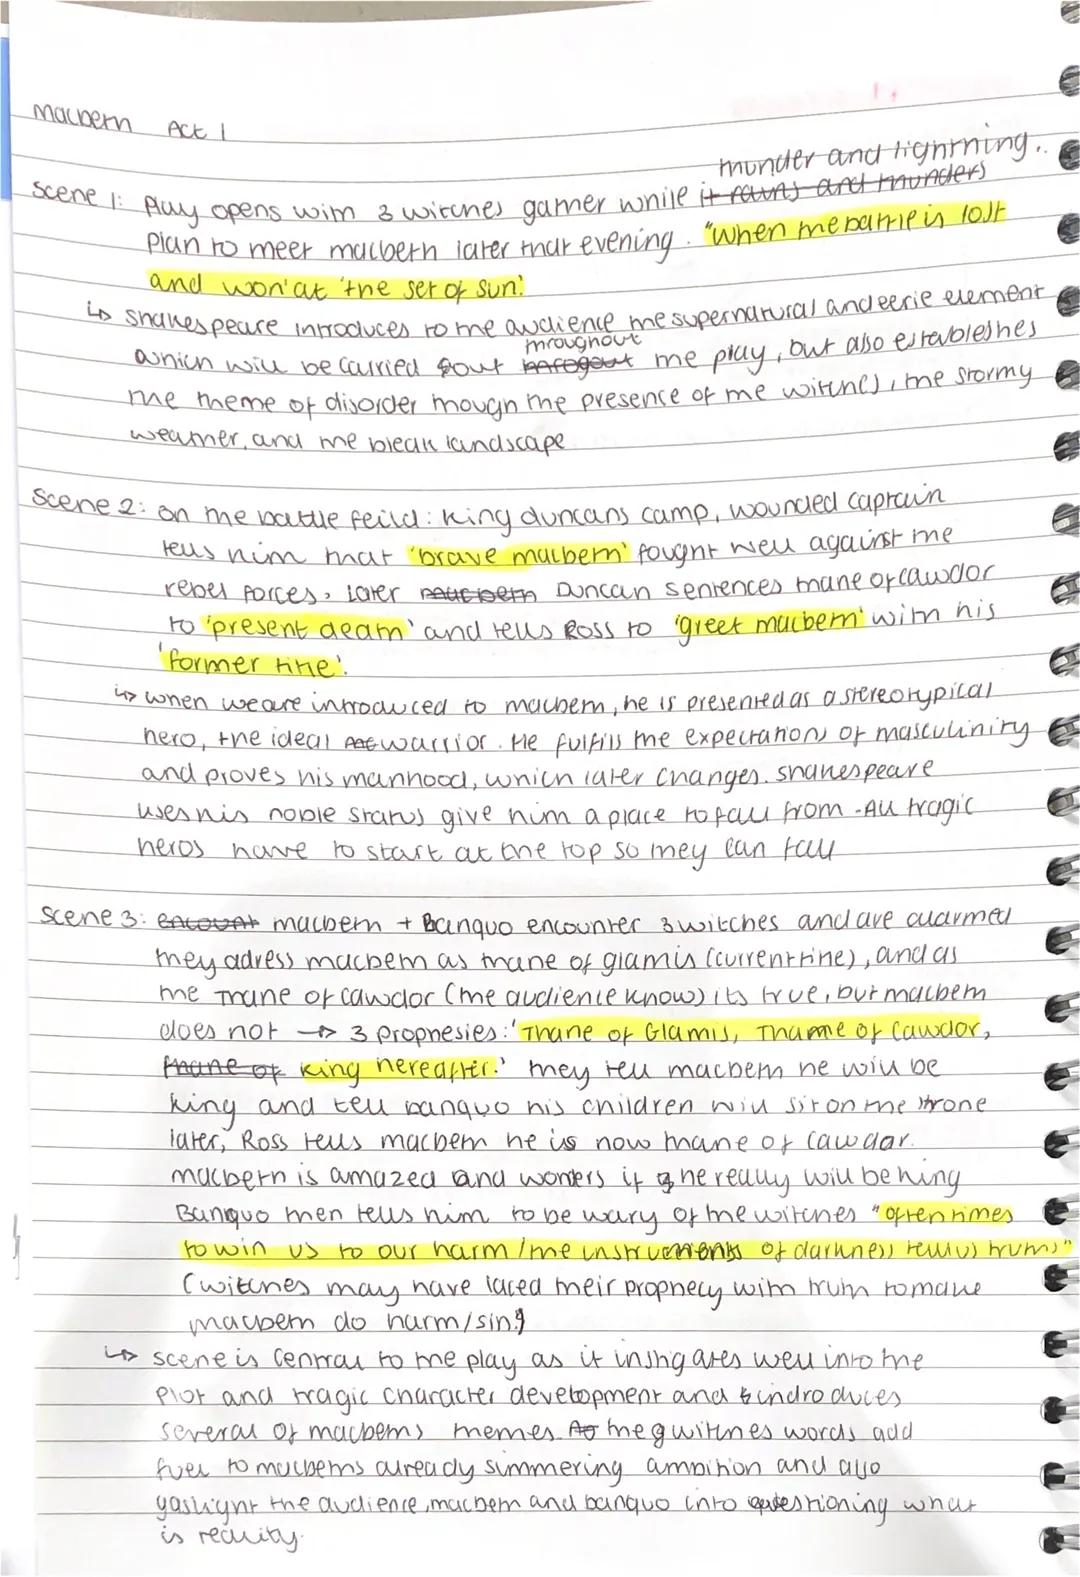 Macbeth Act 1
thunder and lightning..
Scene 1: Play opens with 3 witches gather while it rains and thunders
Plan to meet macbeth later that evening. "when the battle is lost
and won' at 'the set of sun.'
↳ Shakespeare introduces to the audience the supernatural and eerie element
throughout
which will be carried out the play, but also estableshes
the theme of disorder though the presence of the witches, the stormy
weather, and the bleak landscape
Scene 2: on the battle feild: King duncans camp, wounded captain
tells him that 'brave macbeth' fought well against the
rebel forces, Later macbeth Duncan sentences thane of cawdor
to 'present death' and tells Ross to 'greet macbeth' with his
'former title'.
↳ when we are introduced to macbeth, he is presented as a stereotypical
hero, the ideal warrior. He fulfills the expectations of masculinity
and proves his manhood, which later changes. Shakespeare
uses his noble status give him a place to fall from - All tragic
heros have to start at the top so they can fall
Scene 3: encount macbeth + Banquo encounter 3 witches and are alarmed
they adress macbeth as thane of glamis (current title), and as
the Thane of cawdor (the audience know) its true, but macbeth
does not → 3 prophesies: 'Thane of Glamis, Thane of Cawdor,
thane of king hereafter.' They tell macbeth he will be
king and tell banquo his children will sit on the throne
later, Ross tells macbeth he is now thane of cawdor.
macbeth is amazed and wonders if he really will be king
Banquo then tells him to be wary of the witches "oftentimes
to win us to our harm / the instruments of darkness tell us truths"
(witches may have laced their prophecy with truth to make
macbeth do harm/sin)
↳ scene is central to the play as it instigates well into the
plot and tragic character development and indroduces
several of macbeths themes. the witches words add
fuel to macbeths already simmering ambition and also
gaslight the audience, macbeth and banquo into questioning what
is reality.